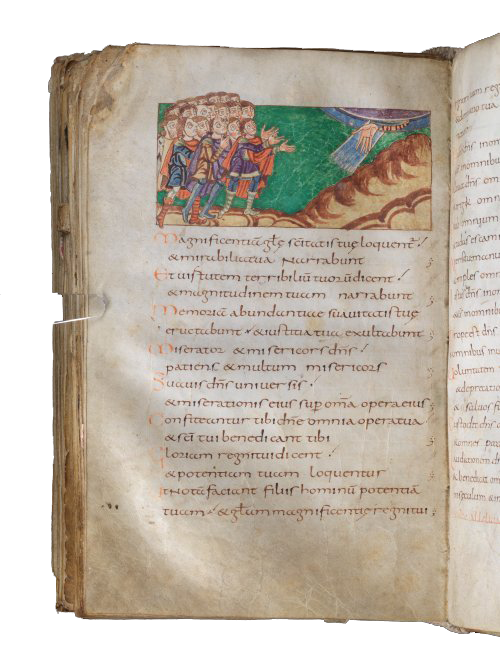 Magnificentiā glę sc̄itatis tuę loquent᷑
& mirabilia tua Narrabunt
Et uirtutem terribiliū tuorū dicent
& magnitudinem tuam narrabunt
Memoriā abundantiae suauitatis tuę
eructabunt & iustitia tua exultabunt
Miserator & misericors dn̄s
patiens & multum misericors
Suauis dn̄s uniuersis
& miserationes eius sup om̄a opera eius
Confiteantur tibi dn̄e omnia opera tua
& sc̄i tui benedicant tibi
Gloriam regni tui dicent
& potentiam tuam loquentur
Ut Nota faciant filiis hominū potentiā
tuam & glam magnificentię regni tui